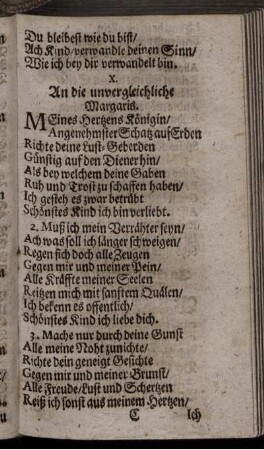 Du bleibest wie du bist/
Ach Kind/verwandle deinen Sinn/
Wie ich bey dir verwandelt bin.
X.
An die unvergleichliche
Margaris.
MEines Hertzens Königin/
Angenehmster Schatz auf Erden
Richte deine Lust-Geberden
Günstig auf den Diener hin/
Als bey welchem deine Gaben
Ruh und Trost zu schaffen haben/
Ich gesteh es zwar betrübt
Schönstes Kind ich bin verliebt.
2. Muß ich mein Verrähter seyn/
Ach was soll ich länger schweigen/
Regen sich doch alle Zeugen
Gegen mir und meiner Pein/
Alle Kräffte meiner Seelen
Reitzen mich mit sanftem Quälen/
Ich bekenn es offentlich/
Schönstes Kind ich liebe dich.
3. Mache nur durch deine Gunst
Alle meine Noht zunichte/
Richte dein geneigt Gesichte
Gegen mir und meiner Brunst/
Alle Freude/Lust und Schertzen
Reiß ich sonst aus meinem Hertzen/
C Ich